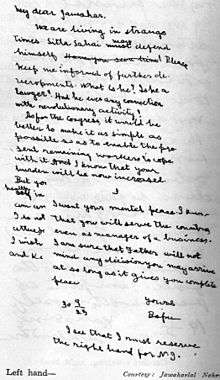 My dear Jawahar.
We are living in strange
times. Sitla Sahai may defend
himself. Please
keep me informed of further de-
velopments. What is he? Is he a
lawyer? Had he ever any connection
with revolutionary activity?
As for the Congress, it would be
better to make it as simple as
possible so as to enable the pre-
sent remaining workers to cope
with it. I know that your
burden will be now increased.
But yo
health
can
I is no
I wish
and Ke
I want your mental peace. I know
that you will serve the country
even as manager of a business.
I am sure that Father will not
mind any decision you may arrive
at so long as it gives you complete
peace
30 9 25
Yours
Bapu
I see that I must reserve
the right hand for N.J.
Left hand—
Courtesy: Jawaharlal Nehr